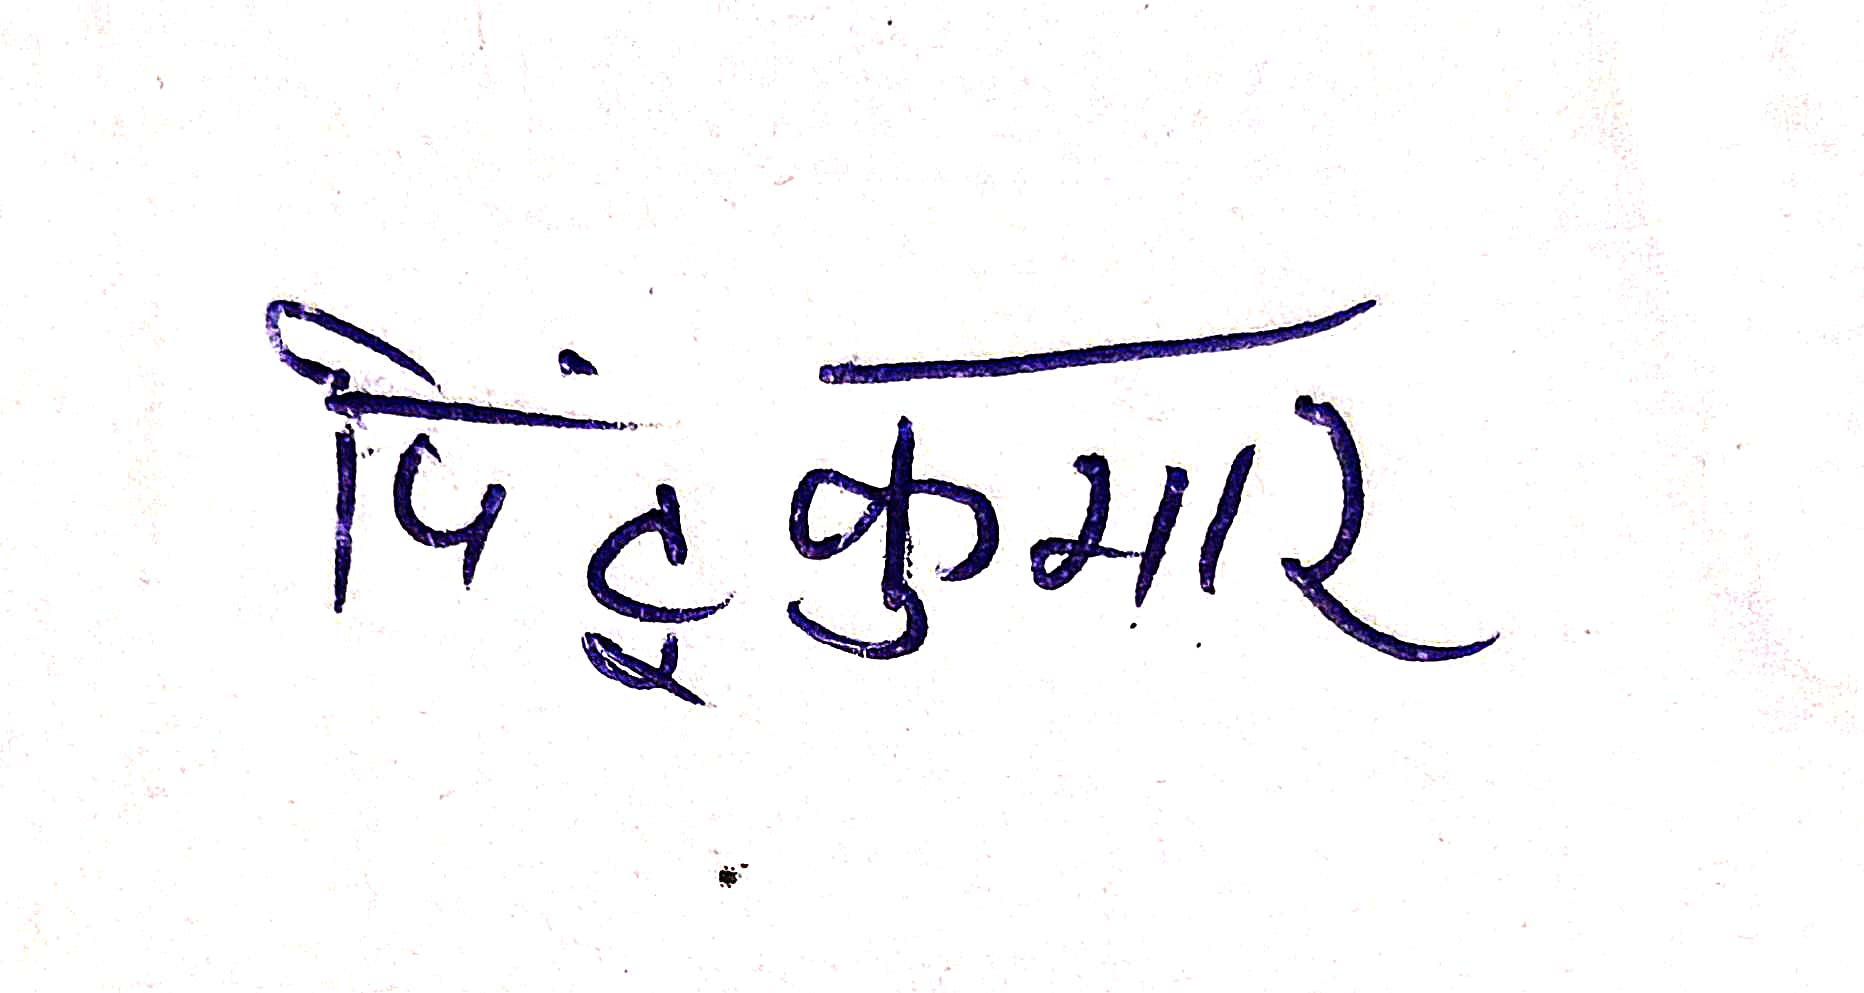 पिंटू कुमार